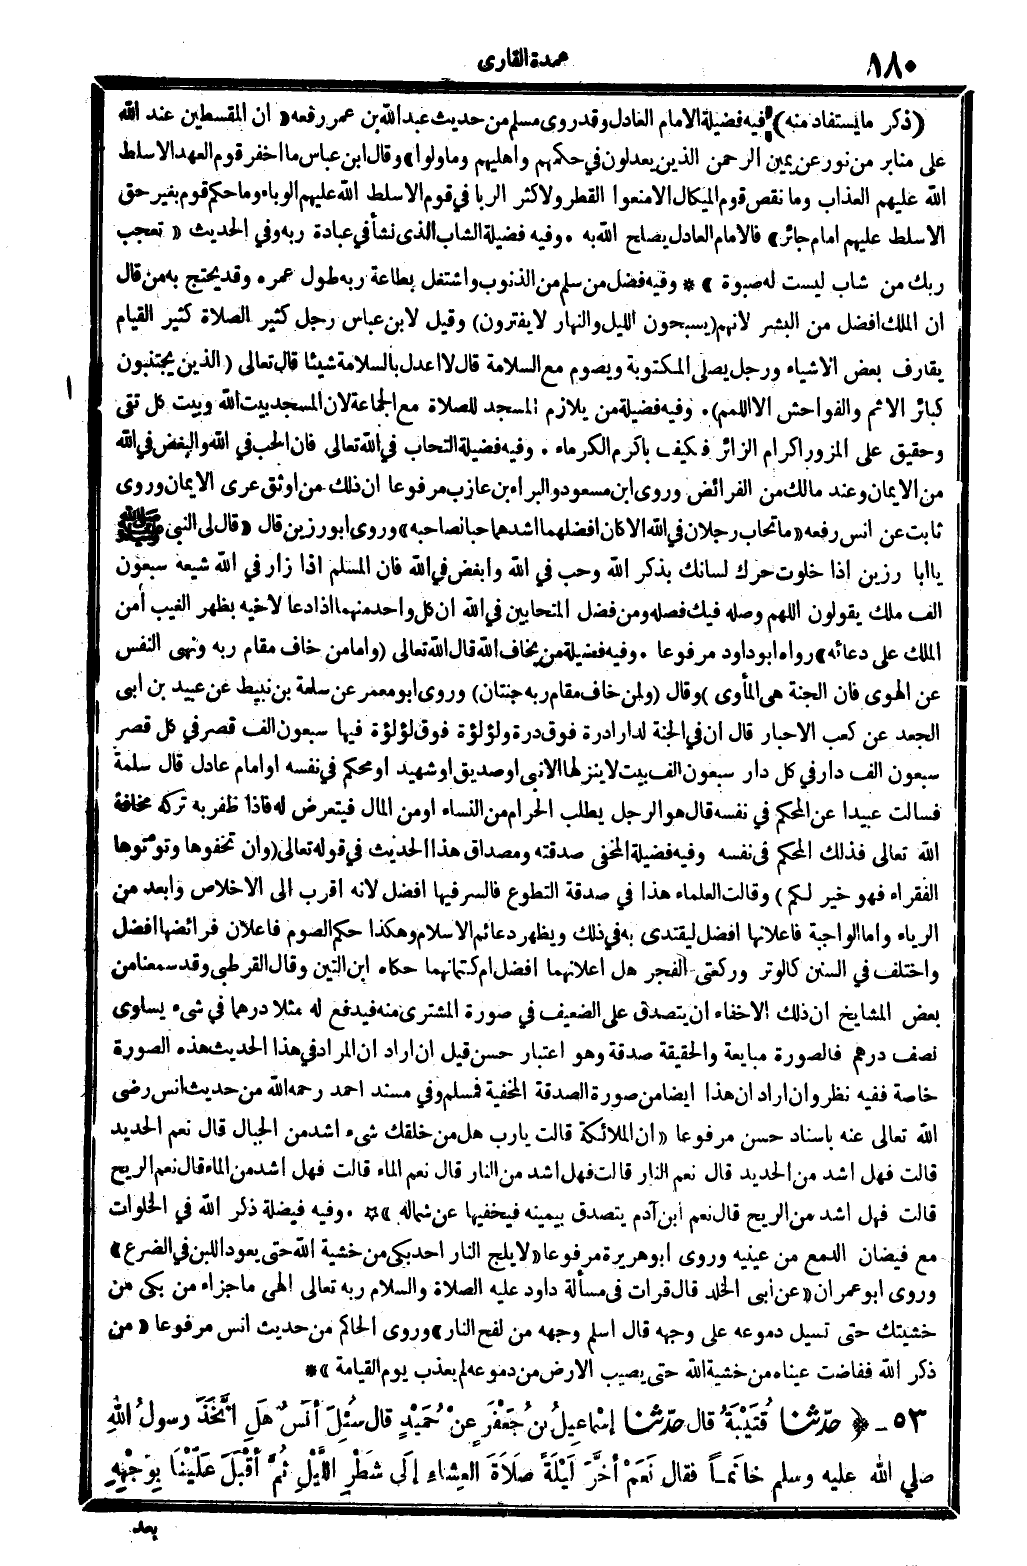 ١٨٠
عمدة القارى
(ذكر ما يستفاد منه) فيه فضيلة الامام العادل وقد روى مسلم من حديث عبد الله بن عمر رفعه « ان المقسطين عند الله
على منابر من نور عن يمين الرحمن الذين يعدلون في حكمهم واهليهم وما ولوا» وقال ابن عباس ما اخفر قوم العهد الا سلط
الله عليهم العذاب وما نقص قوم الميكال الا منعوا القطر ولا كثر الربا في قوم الا سلط الله عليهم الوباء وما حكم قوم بغير حق
الا سلط عليهم امام جائر» فالامام العادل يصلح الله به . وفيه فضيلة الشاب الذى نشأ في عبادة ربه وفي الحديث « تعجب
ربك من شاب ليست له صبوة » * وفيه فضل من سلم من الذنوب واشتغل بطاعة ربه طول عمره وقد يحتج به من قال
ان الملك افضل من البشر لانهم (يسبحون الليل والنهار لا يفترون) وقيل لابن عباس رجل كثير الصلاة كثير القيام
يقارف بعض الاشياء ورجل يصلى المكتوبة ويصوم مع السلامة قال لا اعدل بالسلامة شيئا قال تعالى (الذين يجتنبون
كبائر الاثم والفواحش الا اللمم). وفيه فضيلة من يلازم المسجد للصلاة مع الجماعة لان المسجد بيت الله وبيت كل تقى
وحقيق على المزور اكرام الزائر فكيف باكرم الكرماء . وفيه فضيلة التحاب في الله تعالى فان الحب في الله والبغض في الله
من الايمان وعند مالك من الفرائض وروى ابن مسعود والبراء بن عازب مرفوعا ان ذلك من اوثق عرى الايمان وروى
ثابت عن انس رفعه « ما تحاب رجلان في الله الا كان افضلهما اشدهما حبا لصاحبه» وروى ابو رزين قال « قال لى النبى ﷺ
يا ابا رزين اذا خلوت حرك لسانك بذكر الله وحب في الله وابغض في الله فان المسلم اذا زار في الله شيعه سبعون
الف ملك يقولون اللهم وصله فيك فصله ومن فضل المتحابين في الله ان كل واحد منهما اذا دعا لاخيه بظهر الغيب أمن
الملك على دعائه» رواه ابو داود مرفوعا . وفيه فضيلة من يخاف الله قال الله تعالى (واما من خاف مقام ربه ونهى النفس
عن الهوى فان الجنة هى المأوى )وقال (ولمن خاف مقام ربه جنتان) وروى ابو معمر عن سلمة بن نبيط عن عبيد بن ابى
الجعد عن كعب الاحبار قال ان في الجنة لدارا درة فوق درة ولؤلؤة فوق لؤلؤة فيها سبعون الف قصر في كل قصر
سبعون الف دار في كل دار سبعون الف بيت لا ينزلها الا نبى او صديق او شهيد او محكم في نفسه او امام عادل قال سلمة
فسالت عبيدا عن المحكم في نفسه قال هو الرجل يطلب الحرام من النساء او من المال فيتعرض له فاذا ظفر به تركه مخافة
الله تعالى فذلك المحكم فى نفسه وفيه فضيلة المخفى صدقته ومصداق هذا الحديث في قوله تعالى (وان تخفوها وتؤتوها
الفقراء فهو خير لكم) وقالت العلماء هذا في صدقة التطوع فالسر فيها افضل لانه اقرب الى الاخلاص وابعد من
الرياء واما الواجبة فاعلانها افضل ليقتدى به في ذلك ويظهر دعائم الاسلام وهكذا حكم الصوم فاعلان فرائضها افضل
واختلف في السنن كالوتر وركعتى الفجر هل اعلانهما افضل ام كتمانهما حكاه ابن التين وقال القرطبى وقد سمعنا من
بعض المشايخ ان ذلك الاخفاء ان يتصدق على الضعيف في صورة المشترى منه فيدفع له مثلا درهما في شىء يساوى
نصف درهم فالصورة مبايعة والحقيقة صدقة وهو اعتبار حسن قيل ان اراد ان المراد في هذا الحديث هذه الصورة
خاصة ففيه نظر وان اراد ان هذا ايضا من صورة الصدقة المخفية فمسلم وفي مسند احمد رحمه الله من حديث انس رضى
الله تعالى عنه باسناد حسن مرفوعا « ان الملائكة قالت يارب هل من خلقك شىء اشد من الجبال قال نعم الحديد
قالت فهل اشد من الحديد قال نعم النار قالت فهل اشد من النار قال نعم الماء قالت فهل اشد من الماء قال نعم الريح
قالت فهل اشد من الريح قال نعم ابن آدم يتصدق بيمينه فيخفيها عن شماله » * . وفيه فيضلة ذكر الله في الخلوات
مع فيضان الدمع من عينيه وروى ابو هريرة مرفوعا « لا يلج النار احد بكى من خشية الله حتى يعود اللبن في الضرع »
وروى ابو عمران « عن أبى الخلد قال قرات فى مسألة داود عليه الصلاة والسلام ربه تعالى الهى ما جزاء من بكى من
خشيتك حتى تسيل دموعه على وجهه قال اسلم وجهه من لفح النار» وروى الحاكم من حديث انس مرفوعا « من
ذكر الله ففاضت عيناه من خشية الله حتى يصيب الارض من دموعه لم يعذب يوم القيامة » *
٥٣ - ﴿ حدّثنا قُتَيْبَةُ قال حدّثنا إسْماعِيلُ بنُ جَعْفَرٍ عنْ حُمَيْدٍ قال سُئِلَ أنَسٌ هَلِ اتَّخَذَ رسولُ اللهِ
صلي الله عليه وسلم خاتَماً فقال نَعَمْ أخَّرَ لَيْلَةً صَلاَةَ العِشاءِ إلَى شَطْرِ اللَّيْلِ ثُمَّ أقْبَلَ عَلَيْنَا بِوَجْهِهِ
بعد